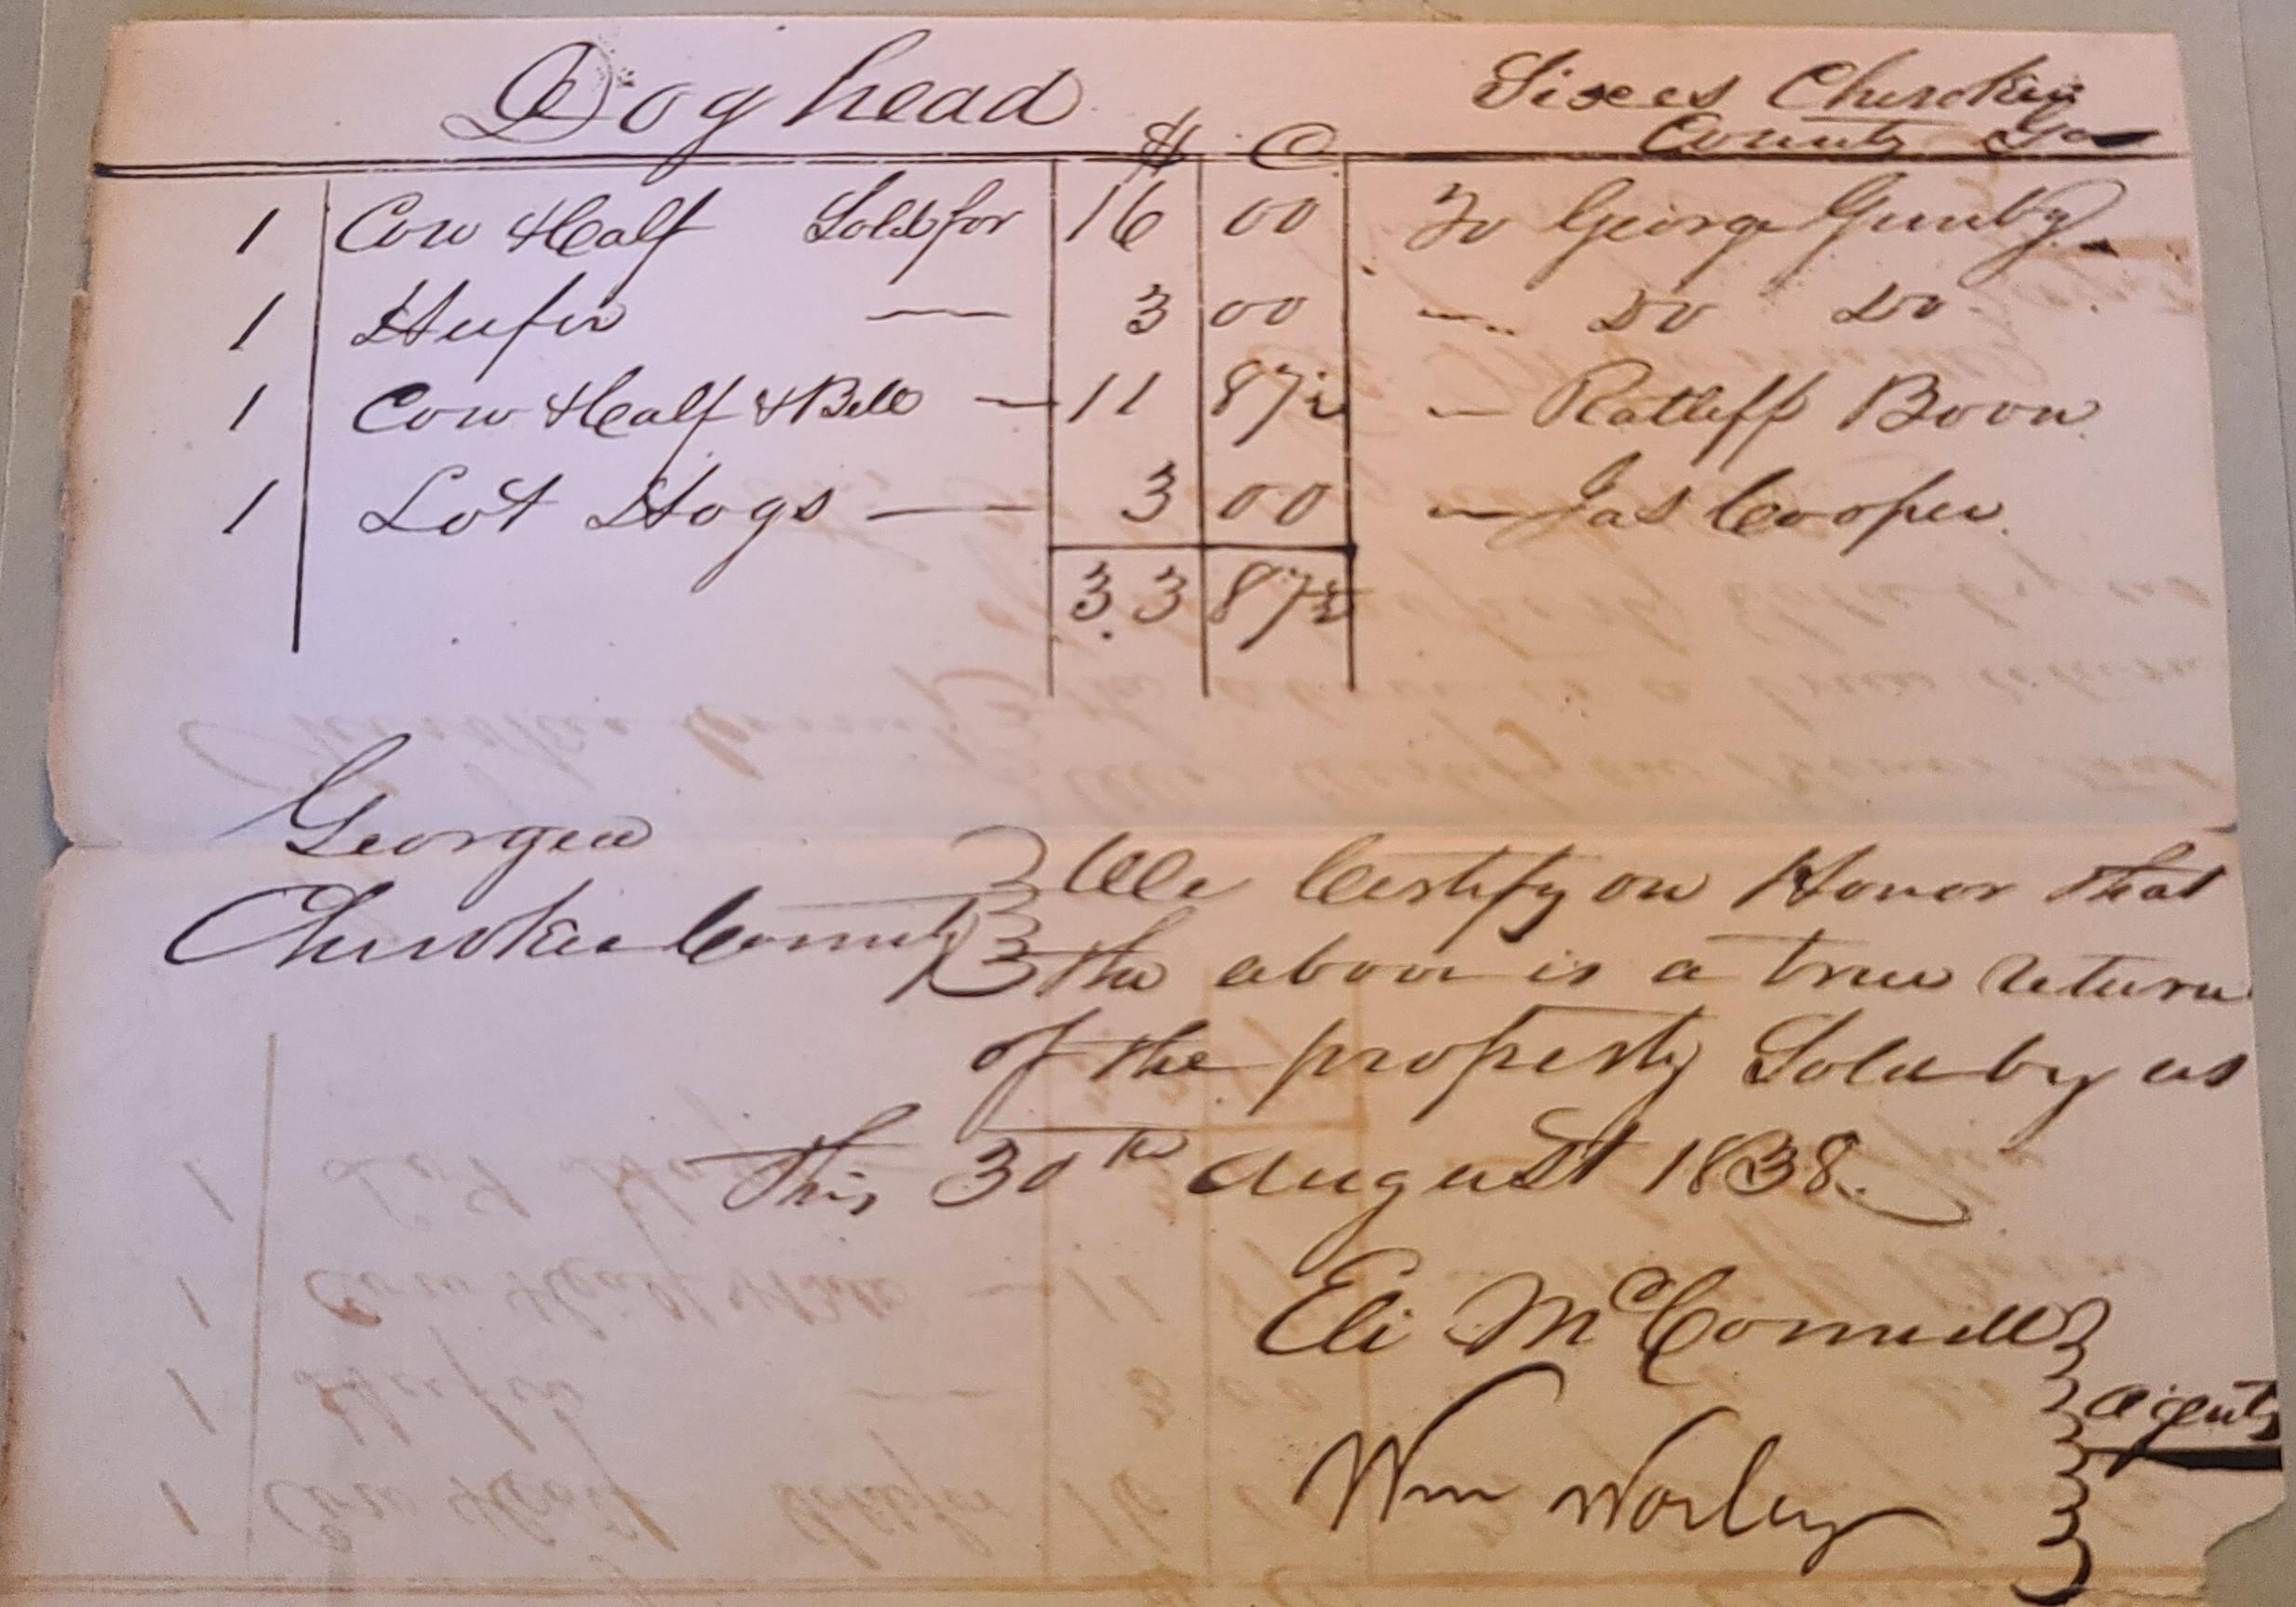 Dog head
Sixes Cherokee
County Ga
$ C
1 Cow & Calf Sold for 16 00 To George Gunby
1 Heifer — 3 00 — Do Do
1 Cow & Calf & Bell — 11 87½ — Ratliff Boon
1 Lot Hogs — 3 00 — Jas Cooper
33 87½
Georgia
Cherokee County We Certify on Honor that
the above is a true return
of the property Sold by us
This 30th August 1838
Eli McConnell
agents
Wm Worley